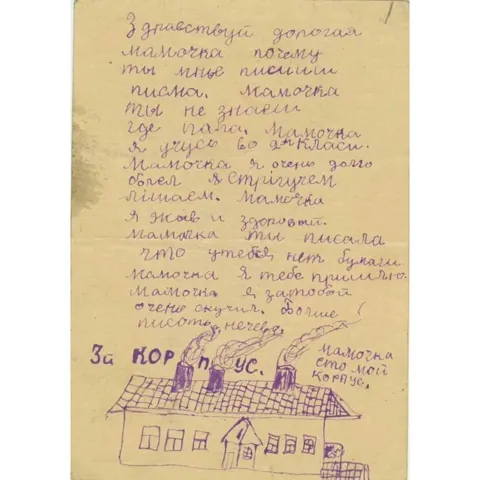 Здравствуй дорогая
мамочка почему
ты мнье писиши
писма. Мамочка
ты не знаеш
где папа. Мамочка
я учусь во 2м класи.
Мамочка я очень долго
болел я стрігучем
лішаем. Мамочка
я жыв и здоровий.
Мамочка ты писала
что у тебя нет бумаги
мамочка я тебе пришлю.
Мамочка я затобой
очень скучил. Больше
писоть нечего.
3й КОРПУС.
мамочка
єто мой
корпус.